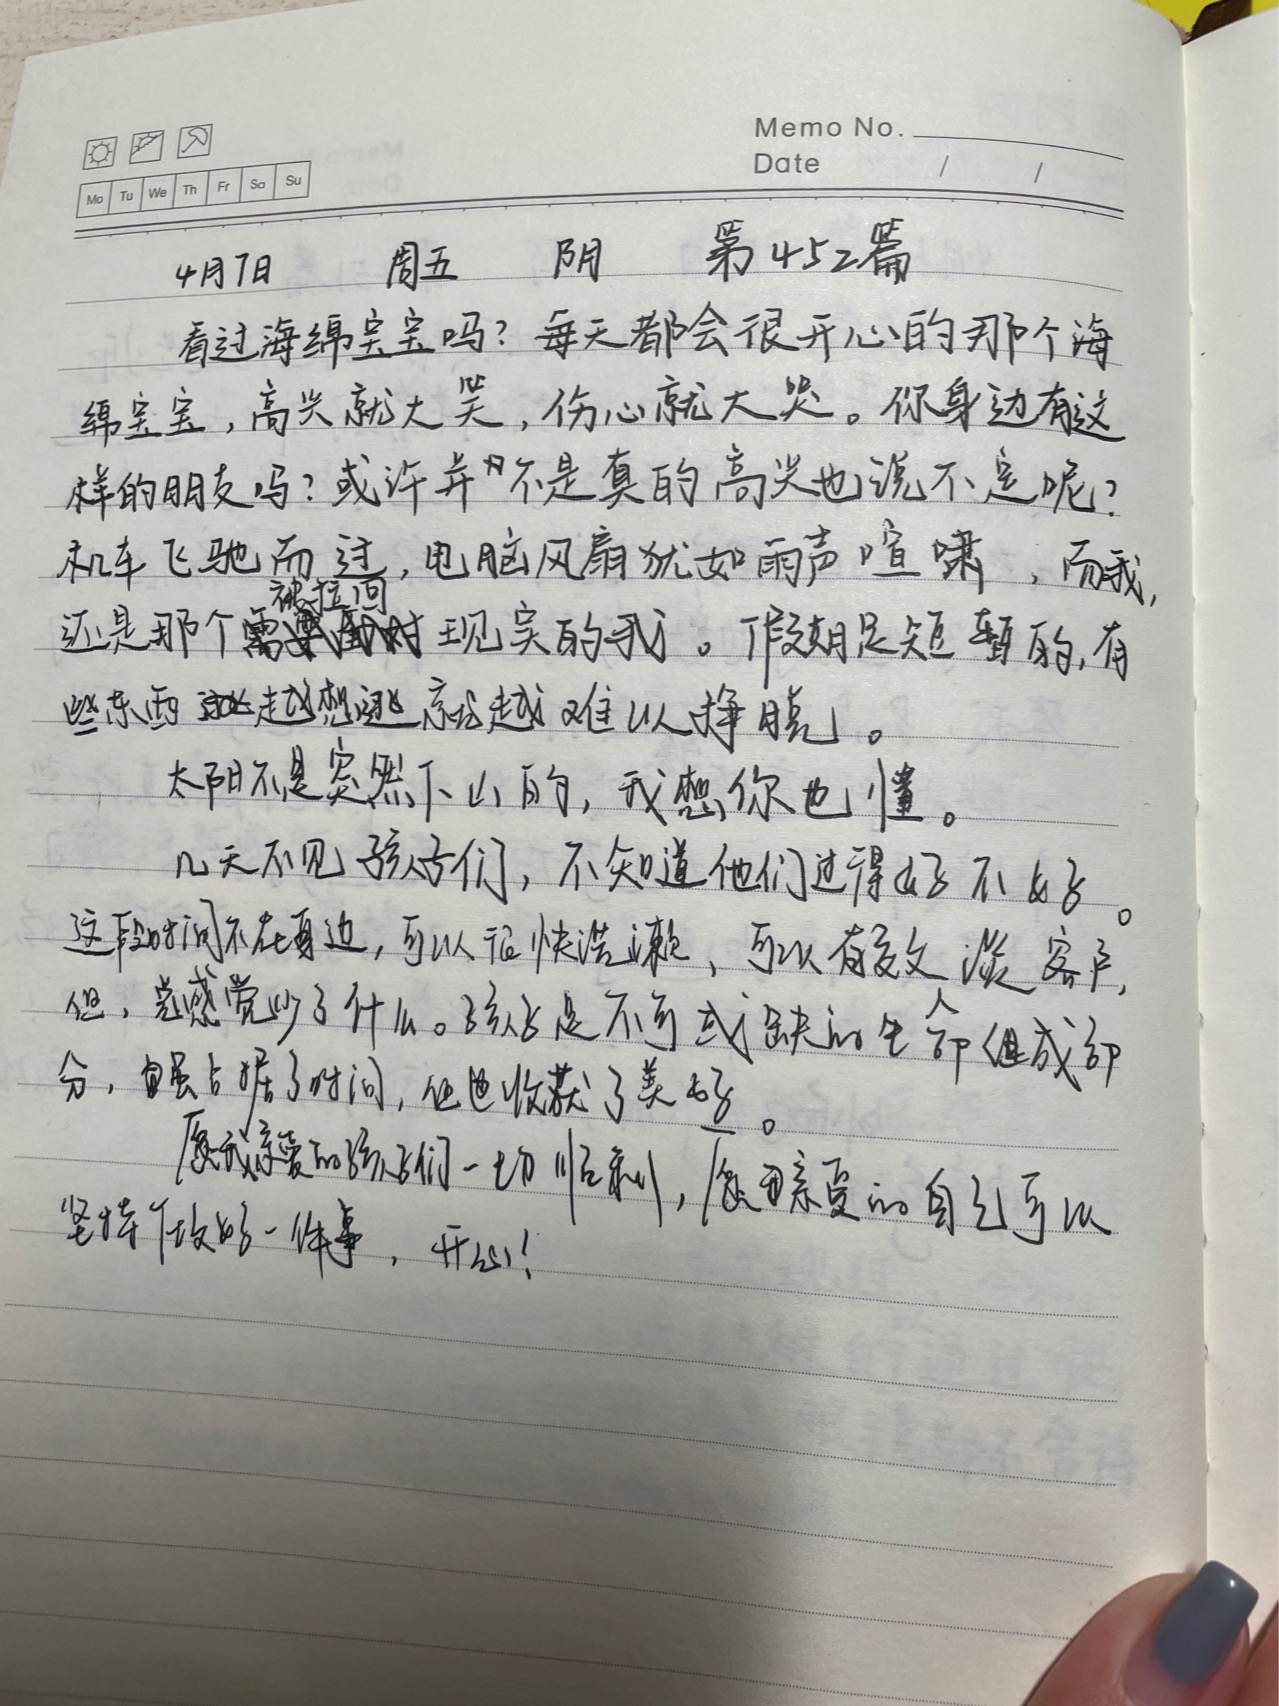 Memo No.
Date / /
Mo Tu We Th Fr Sa Su
4月7日 周五 阴 第452篇
看过海绵宝宝吗？每天都会很开心的那个海
绵宝宝，高兴就大笑，伤心就大哭。你身边有这
样的朋友吗？或许并不是真的高兴也说不定呢？
机车飞驰而过，电脑风扇犹如雨声喧啸，而我，
还是那个被拉回现实的我。假期是短暂的，有
些东西越想逃就越难以挣脱。
太阳不是突然下山的，我想你也懂。
几天不见孩子们，不知道他们过得好不好。
这段时间不在身边，可以很快洗漱，可以有效文谈客户，
但，总感觉少了什么。孩子是不可或缺的生命组成部
分，虽占据了时间，但也收获了美好。
愿我亲爱的孩子们一切顺利，愿我亲爱的自己可以
坚持做好一件事，开心！